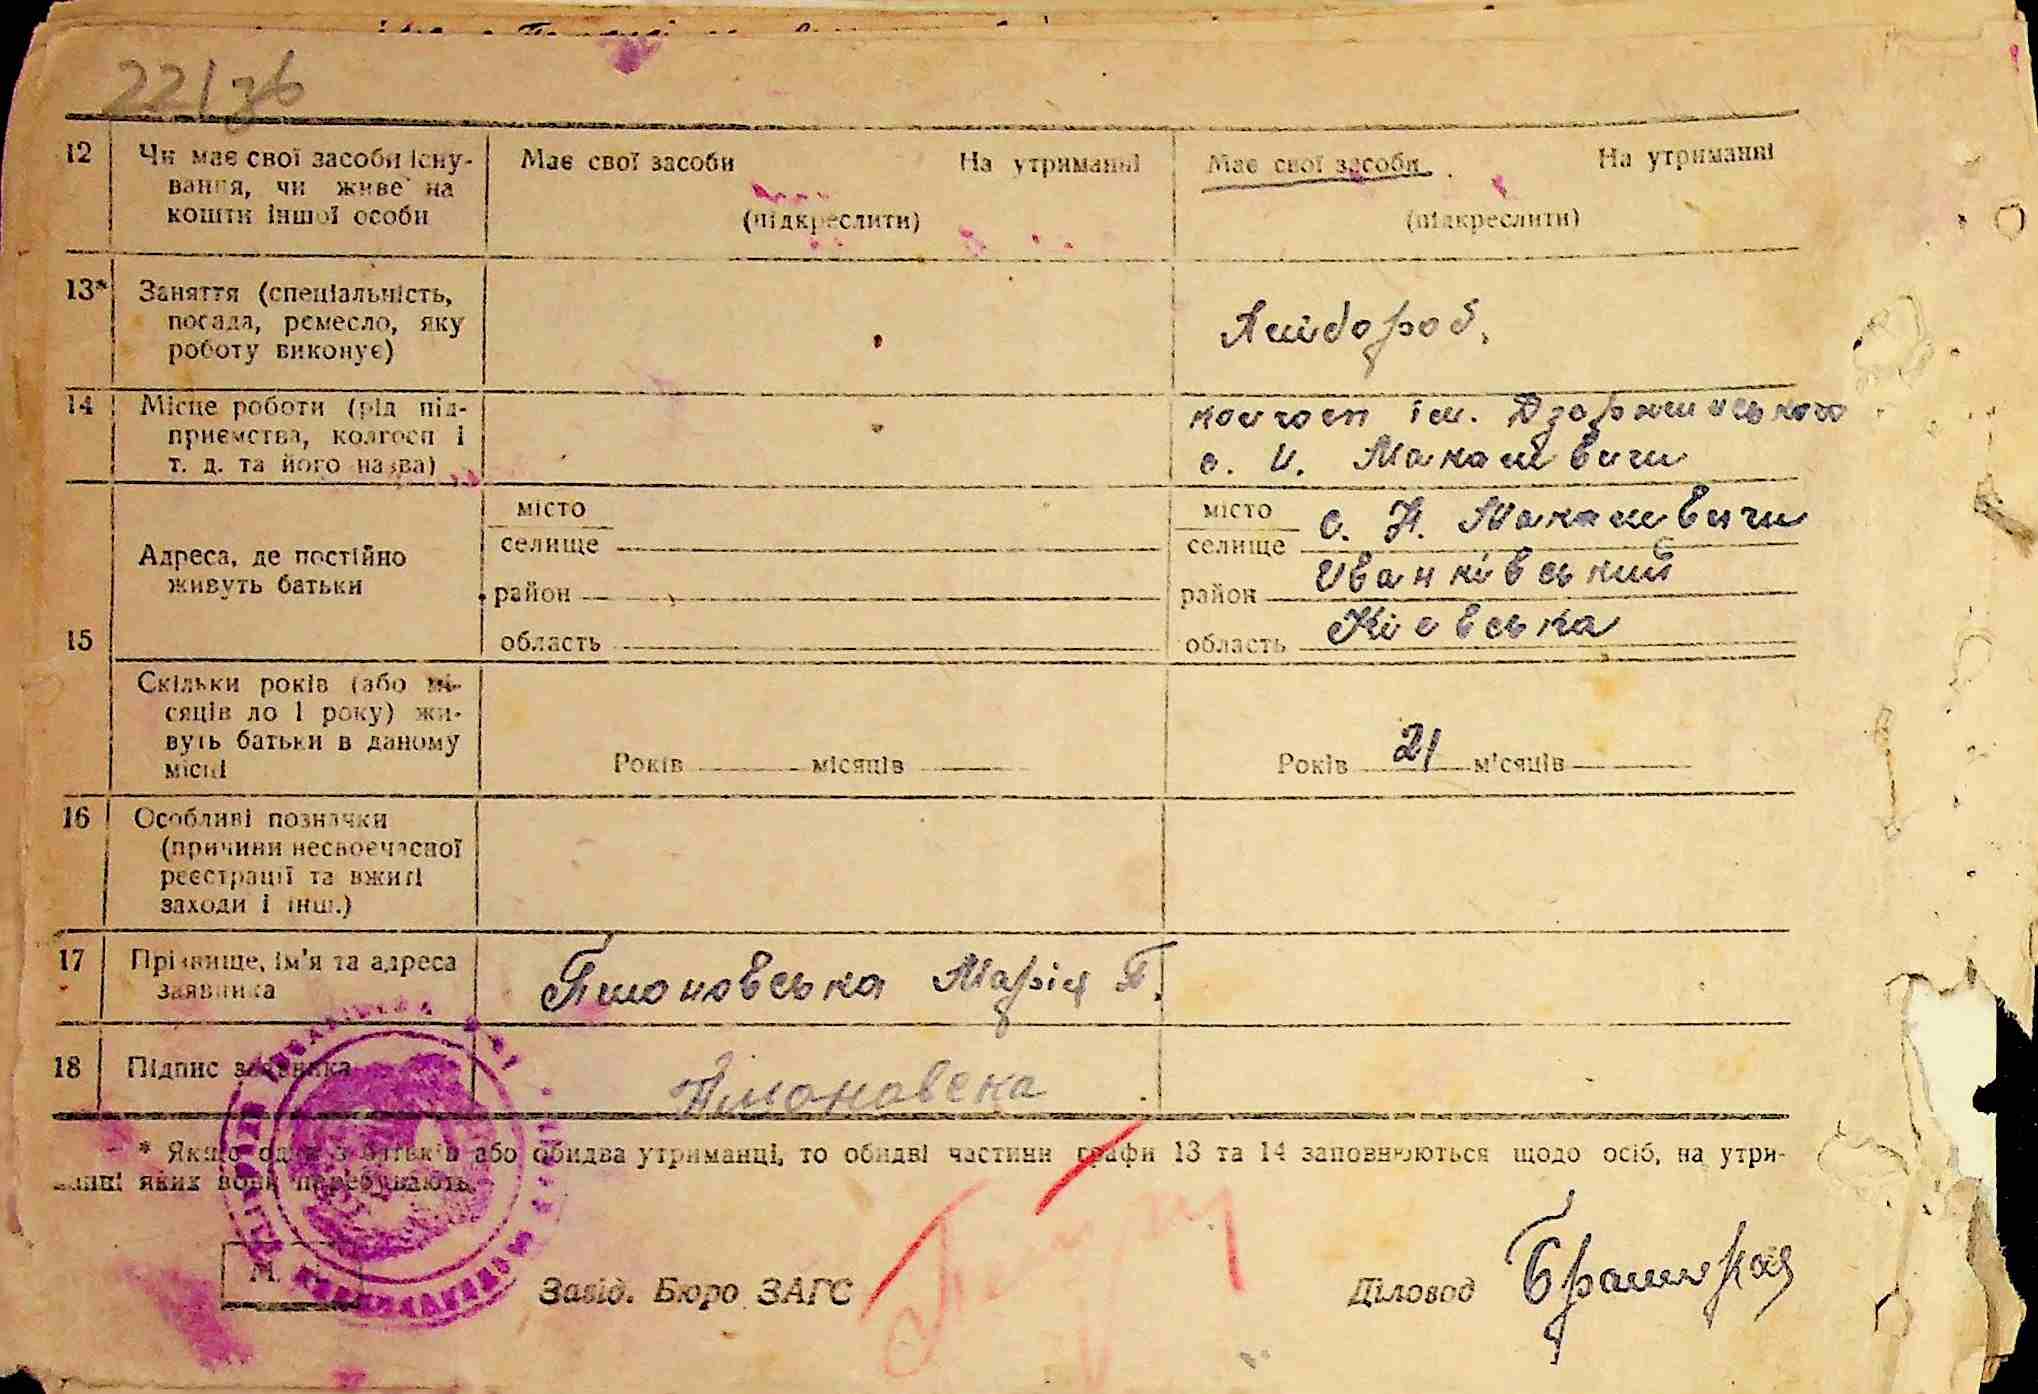 221зв
12 Чи має свої засоби існу-
вання, чи живе на
кошти іншої особи
Має свої засоби На утриманні
(підкреслити)
Має свої засоби На утриманні
(підкреслити)
13* Заняття (спеціальність,
посада, ремесло, яку
роботу виконує)
14 Місце роботи (рід під-
приємства, колгосп і
т. д. та його назва)
колгосп ім. Дзержинського
с. Н. Макалевичи
15 Адреса, де постійно
живуть батьки
місто
селище
район
область
місто
селище с. Н. Макалевичи
район Іванківський
область Кієвська
Скільки років (або мі-
сяців до 1 року) жи-
вуть батьки в даному
місці
Років місяців
Років 21 місяців
16 Особливі позначки
(причини несвоєчасної
реєстрації та вжиті
заходи і інш.)
17 Прізвище, ім'я та адреса
заявника
Марія П.
18 Підпис заявника
* Якщо один з батьків або обидва утриманці, то обидві частини графи 13 та 14 заповнюються щодо осіб, на утри-
манні яких вони перебувають.
М. П.
Завід. Бюро ЗАГС
Діловод